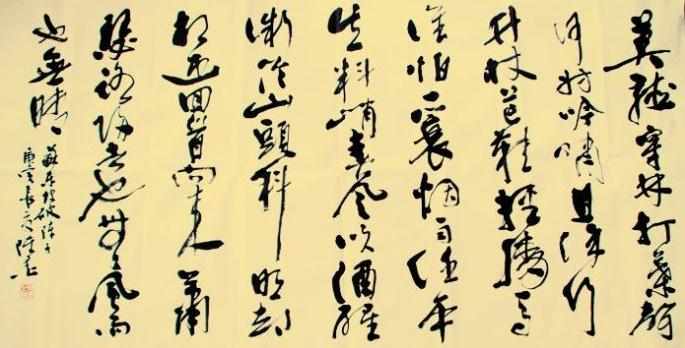 莫聽穿林打葉聲
何妨吟嘯且徐行
竹杖芒鞋輕勝馬
誰怕一蓑烟雨任平
生料峭春風吹酒醒
微冷山頭斜照却
相迎回首向來蕭
瑟處歸去也無風雨
也無晴
蘇東坡
庚寅